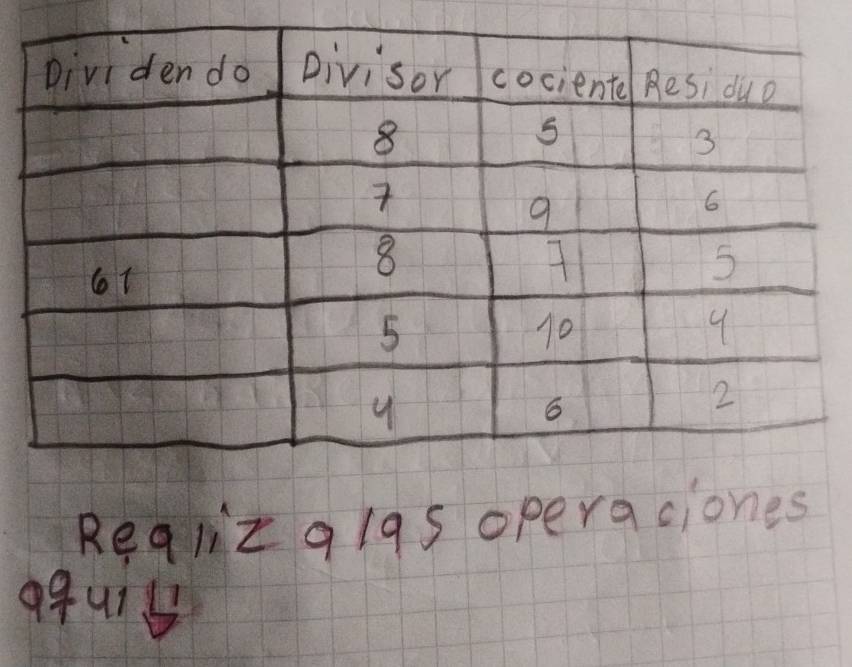 Dividendo Divisor cociente Residuo
8 5 3
7 9 6
61 8 7 5
5 10 4
4 6 2
Realiza las operaciones
aquí